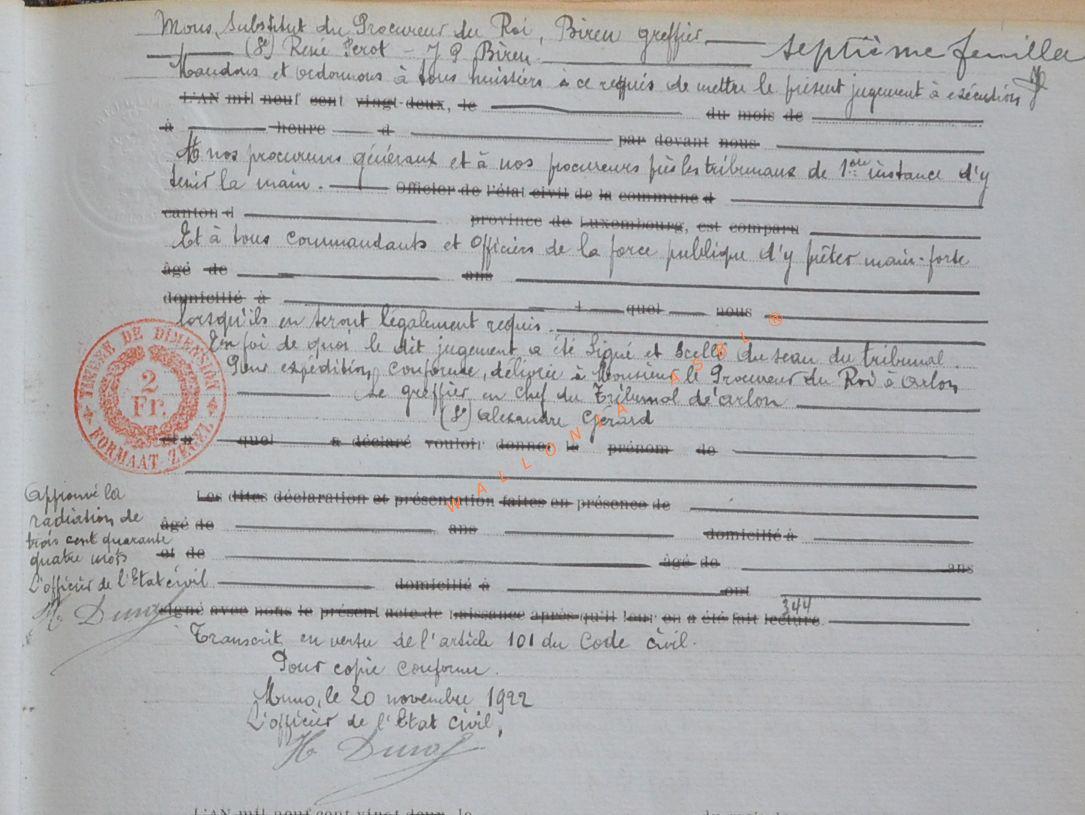 Mons, Substitut du Procureur du Roi, Biren greffier
septième feuille
(S) René Perot - J P. Biren
Mandons et ordonnons à tous huissiers à ce requis de mettre le présent jugement à exécution
L'AN mil neuf cent vingt-deux, le du mois de
à heure d par devant nous
A nos procureurs généraux et à nos procureurs près les tribunaux de 1ère instance d'y
tenir la main. Officier de l'état civil de la commune d
canton d province de Luxembourg, est comparu
Et à tous commandants et Officiers de la force publique d'y prêter main-forte
âgé de ans
domicilié à lequel nous
lorsqu'ils en seront légalement requis.
En foi de quoi le dit jugement a été Signé et Scellé du seau du tribunal.
Pour expédition conforme, délivrée à Monsieur le Procureur du Roi à Arlon
Le greffier en Chef du Tribunal de Arlon
(S) Alexandre Gérard
TIMBRE DE DIMENSION
2
Fr.
FORMAAT-ZEGEL
et a quel a déclaré vouloir donner le prénom de
Les dites déclaration et présentation faites en présence de
âgé de ans domicilié à
et de âgé de ans
domicilié à ont
signé avec nous le présent acte de naissance après qu'il leur en a été fait lecture.
344
Approuvé la
radiation de
trois cent quarante
quatre mots
L'officier de l'Etat civil
Transcrit en vertu de l'article 101 du Code civil.
Pour copie conforme.
Muno, le 20 novembre 1922
L'officier de l'Etat civil,
WALLONIA ASBL ®
L'AN mil neuf cent vingt-deux, le du mois de